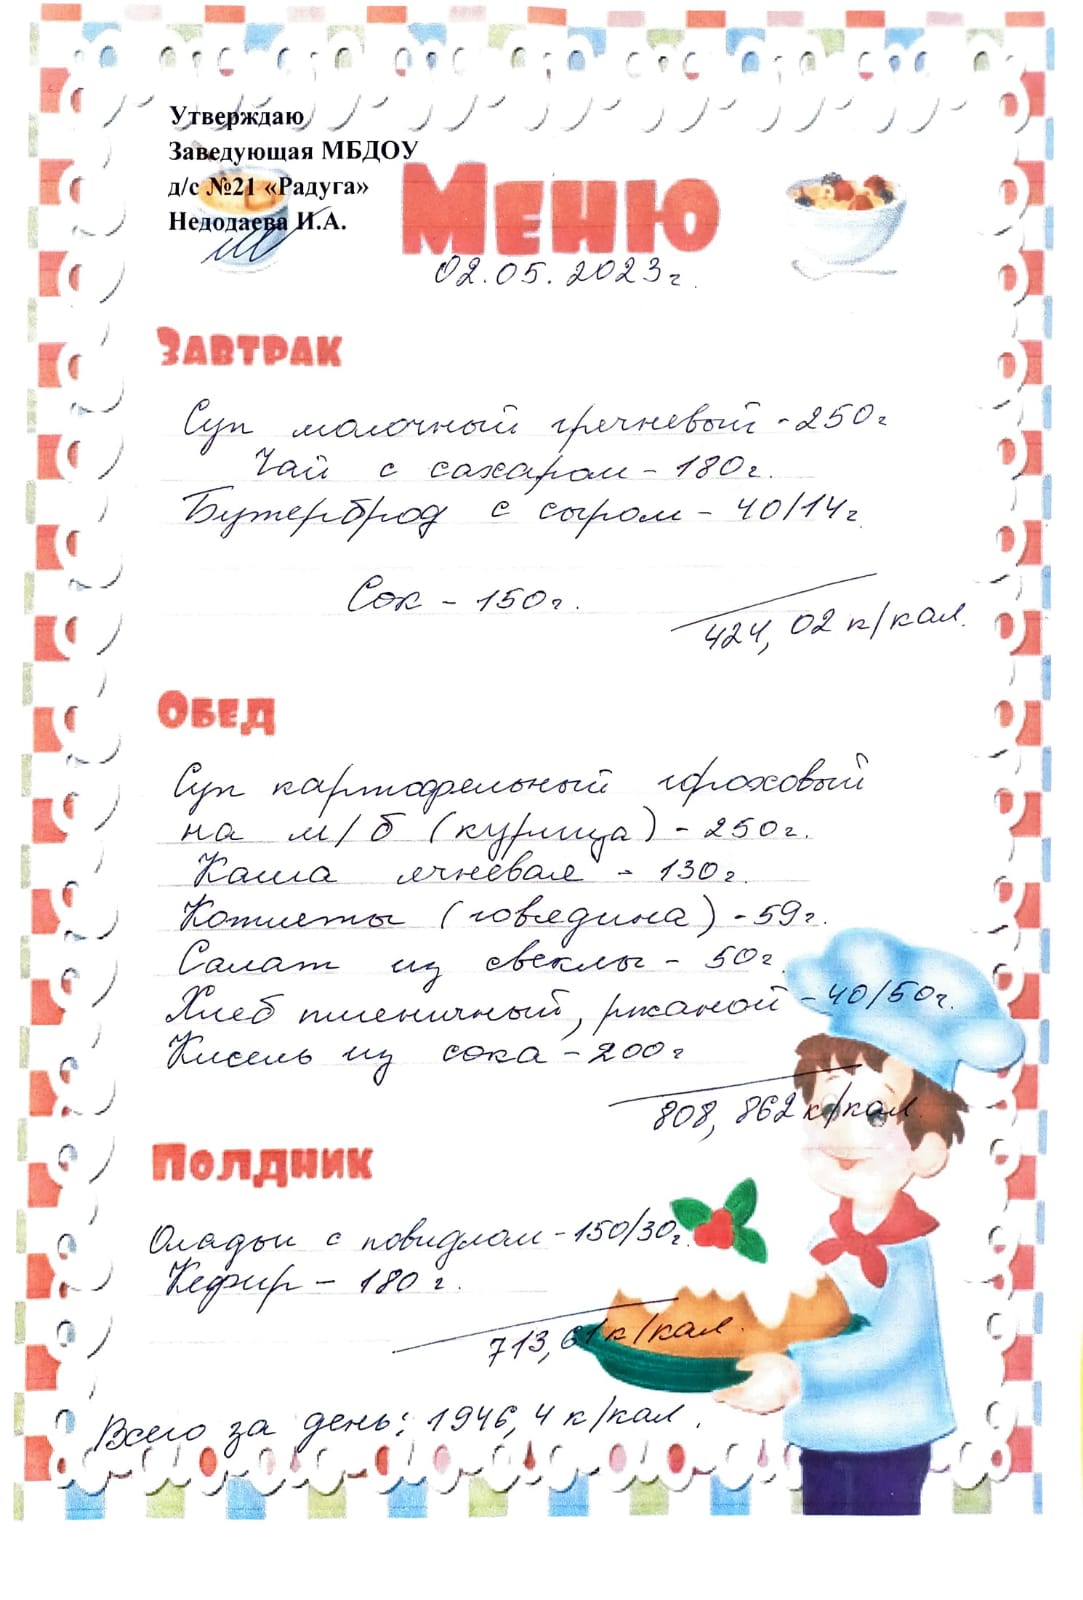 Утверждаю
Заведующая МБДОУ
д/с №21 «Радуга»
Недодаева И.А.
Меню
02.05.2023г.
Завтрак
Суп молочный гречневый - 250г
Чай с сахаром - 180г.
Бутерброд с сыром - 40/14г.
Сок - 150г.
424,02 к/кал.
Обед
Суп картофельный гороховый
на м/б (курица) - 250г.
Каша ячневая - 130г.
Котлеты (говядина) - 59г.
Салат из свеклы - 50г.
Хлеб пшеничный, ржаной - 40/50г.
Кисель из сока - 200г
808,862 к/кал.
Полдник
Оладьи с повидлом - 150/30г.
Кефир - 180г.
713,61 к/кал.
Всего за день: 1946,4 к/кал.